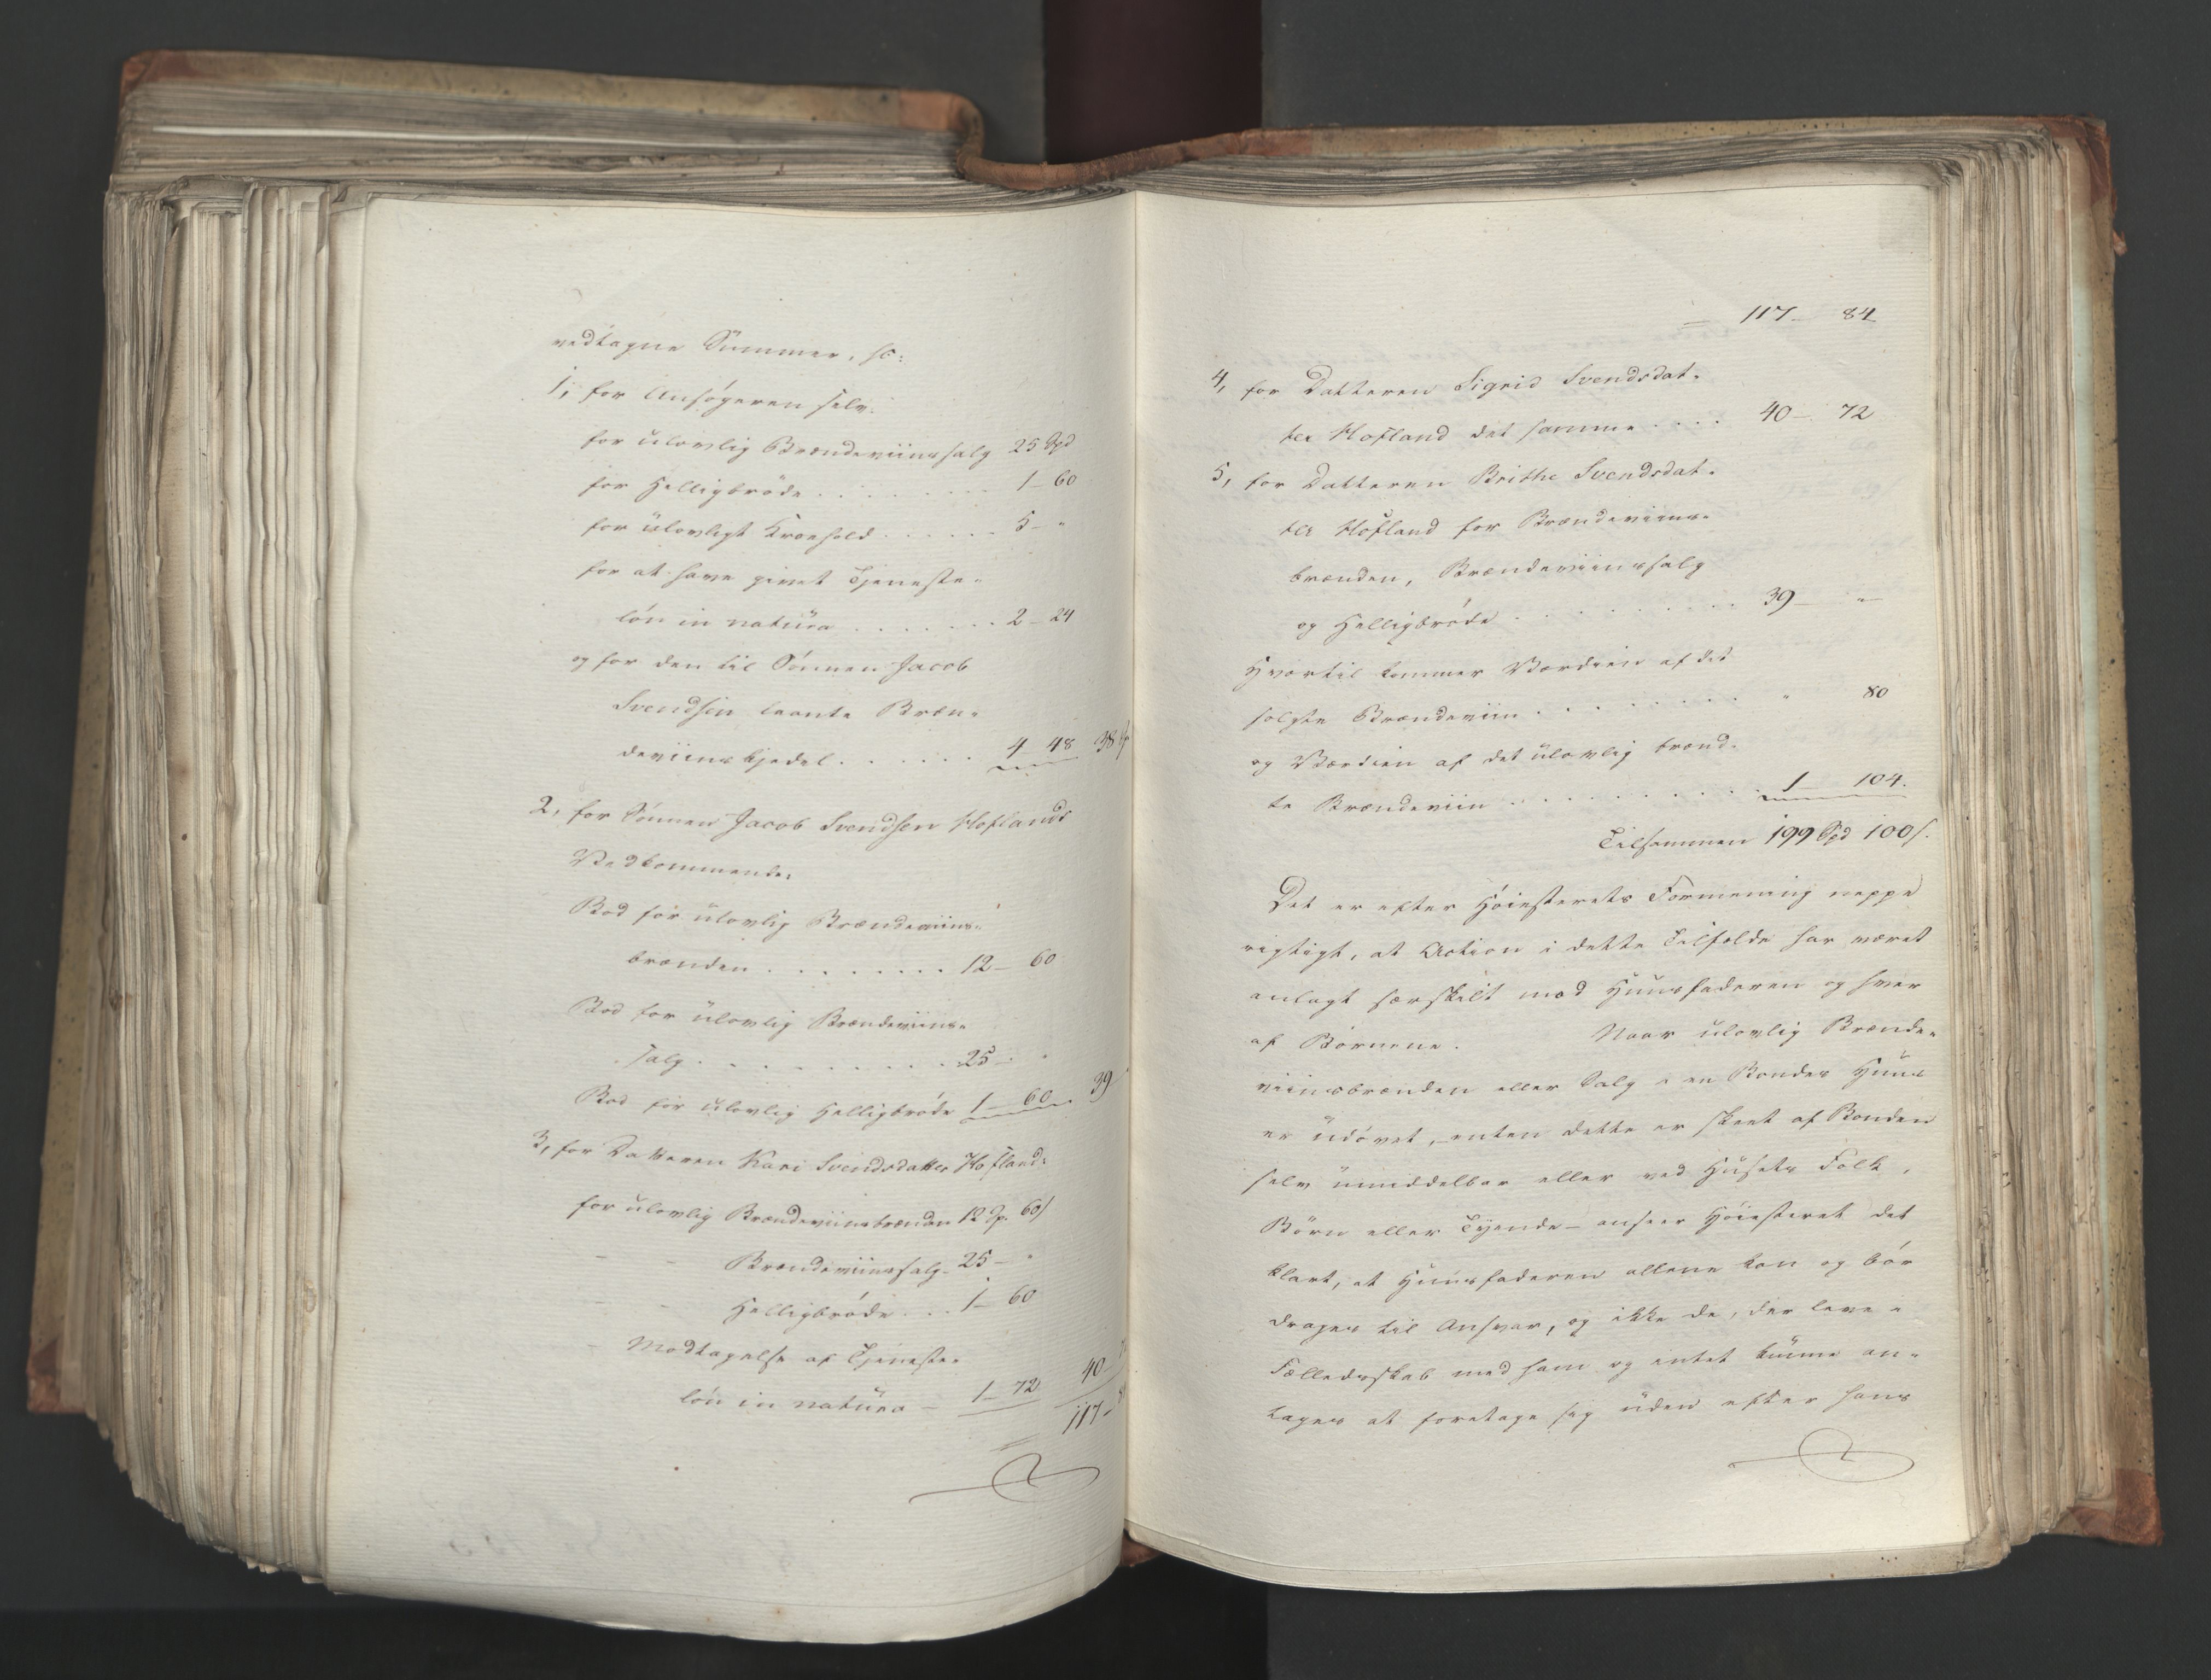 vedtagne Summer, so:
1, for Ansøgeren selv:
for ulovlig Brændeviinssalg 25 Spd
for Helligbrøde . . . . . . . . 1 – 60
for ulovligt Kroehold . . . . . . 5 – "
for at have givet Tjeneste-
løn in natura . . . . . . . 2 – 24
og for den til Sønnen Jacob
Svendsen laante Bræn-
deviinskjedel . . . . . . 4 – 48 38
2, for Sønnen Jacob Svendsen Hoflands
Vedkommende:
Bod for ulovlig Brændeviins-
brænden . . . . . . . . 12 – 60
Bod for ulovlig Brændeviins-
salg . . . . . . . . . . 25 – "
Bod for ulovlig Helligbrøde 1 – 60 39
3, for Datteren Kari Svendsdatter Hofland:
for ulovlig Brændeviinsbrænden 12 Sp. 60 s
– – Brændeviinssalg 25 – "
– – Helligbrøde . . . 1 – 60
– Modtagelse af Tjeneste-
løn in natura – 1 – 72 40 –
117 –
117 – 84
4, for Datteren Sigrid Svendsdat-
ter Hofland det samme . . . . 40 – 72
5, for Datteren Brithe Svendsdat-
ter Hofland for Brændeviins-
brænden, Brændeviinssalg
og Helligbrøde . . . . . . . . . 39 – "
Hvortil kommer Værdien af det
solgte Brændeviin . . . . . . . . . " 80
og Værdien af det ulovlig brænd-
te Brændeviin . . . . . . . . . . 1 – 104.
Tilsammen 199 Spd 100 s.
Det er efter Høiesterets Formening neppe
rigtigt, at Action i dette Tilfælde har været
anlagt særskilt mod Huusfaderen og hver
af Børnene. Naar ulovlig Brænde-
viinsbrænden eller Salg i en Bondes Huus
er udøvet, – enten dette er skeet af Bonden
selv umiddelbar eller ved Husets Folk,
Børn eller Tyende – anseer Høiesteret det
klart, at Huusfaderen allene kan og bør
drages til Ansvar, og ikke de, der leve i
Fælledsskab med ham og intet kunne an-
tages at foretage sig uden efter hans